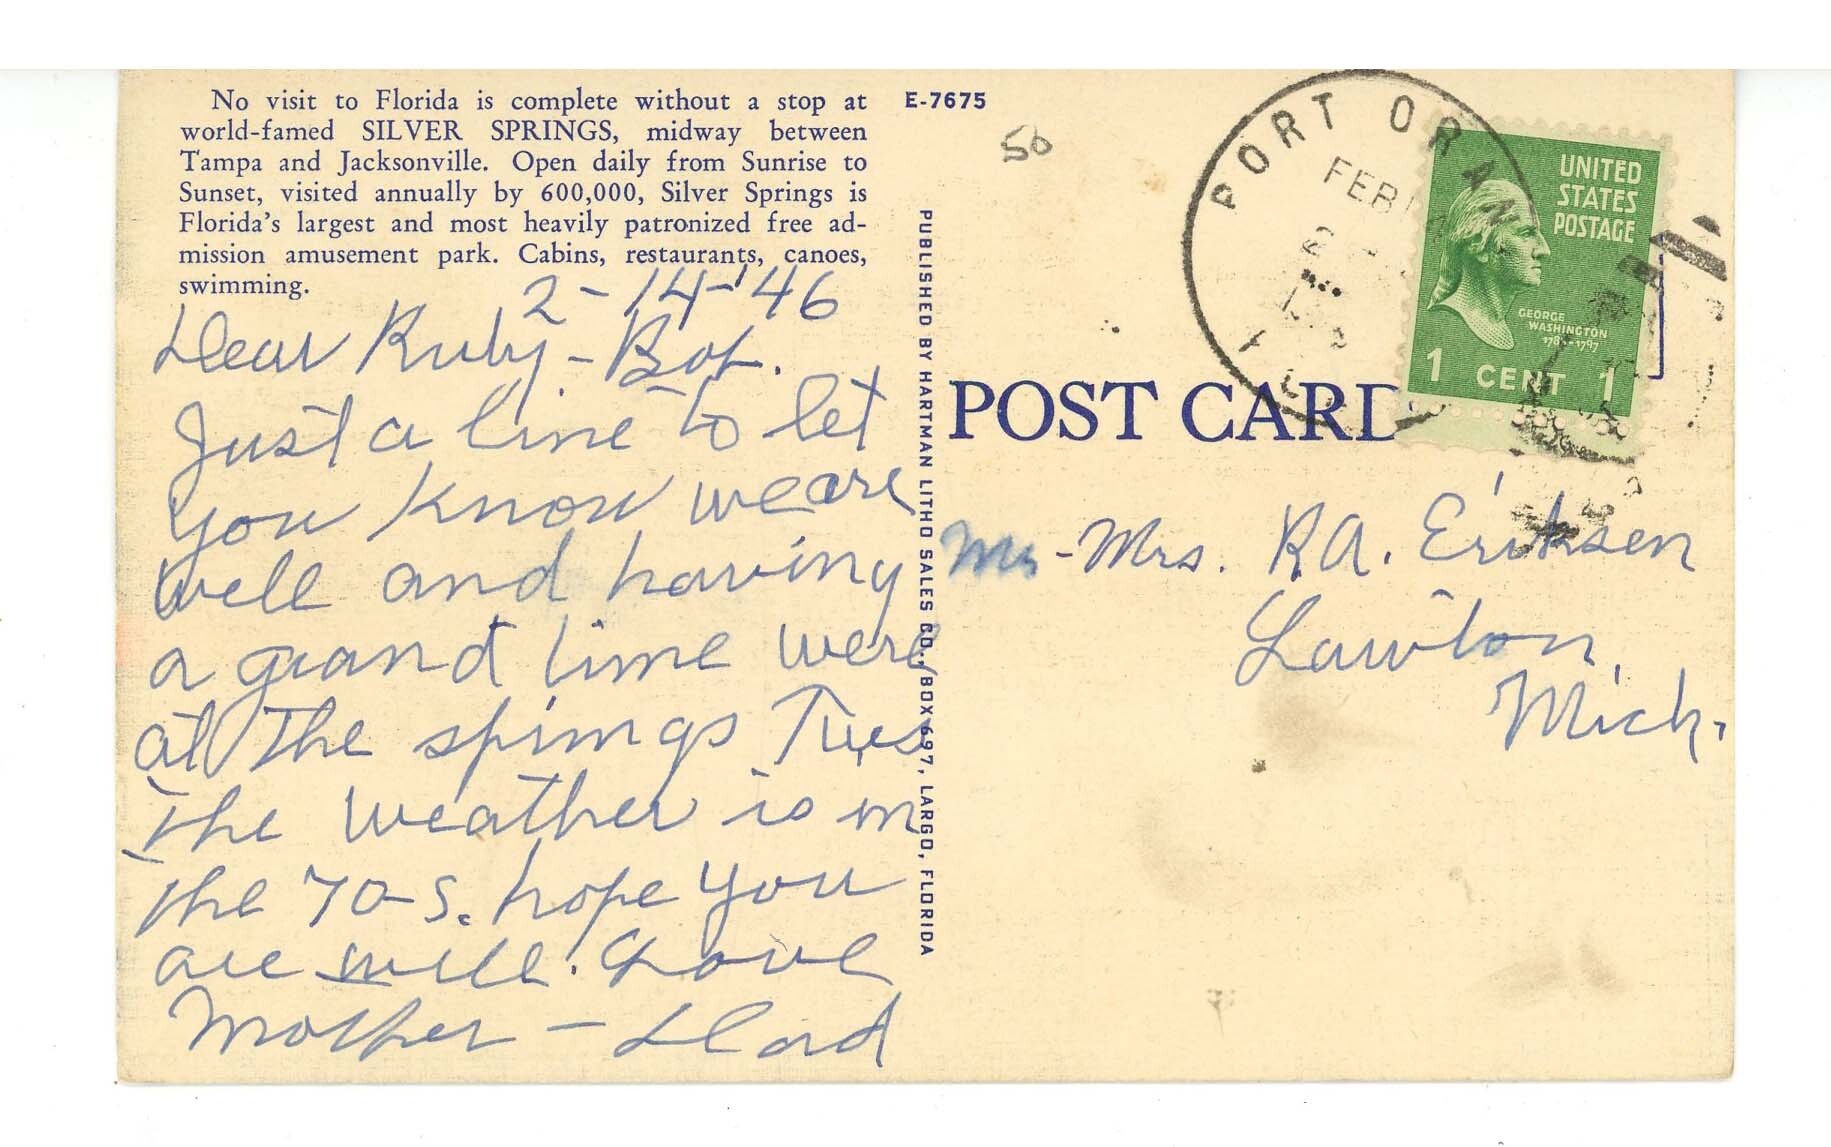 No visit to Florida is complete without a stop at
world-famed SILVER SPRINGS, midway between
Tampa and Jacksonville. Open daily from Sunrise to
Sunset, visited annually by 600,000, Silver Springs is
Florida's largest and most heavily patronized free ad-
mission amusement park. Cabins, restaurants, canoes,
swimming.
2-14-'46
Dear Ruby - Bob.
Just a line to let
you know we are
well and having
a grand time were
at the springs Tues
The weather is in
the 70-s. hope you
are well. Love
Mother - Dad
E-7675
50
PUBLISHED BY HARTMAN LITHO SALES CO., BOX 697, LARGO, FLORIDA
POST CARD
PORT ORAN
FEB 14
UNITED
STATES
POSTAGE
GEORGE
WASHINGTON
1789-1797
1 CENT 1
Mr - Mrs. R.A. Eriksen
Lawton,
Mich.